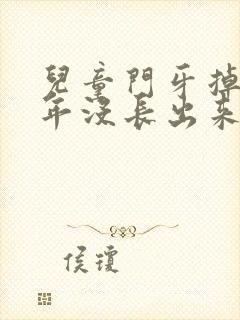 兒童門牙掉
年沒長出來
侯瓊